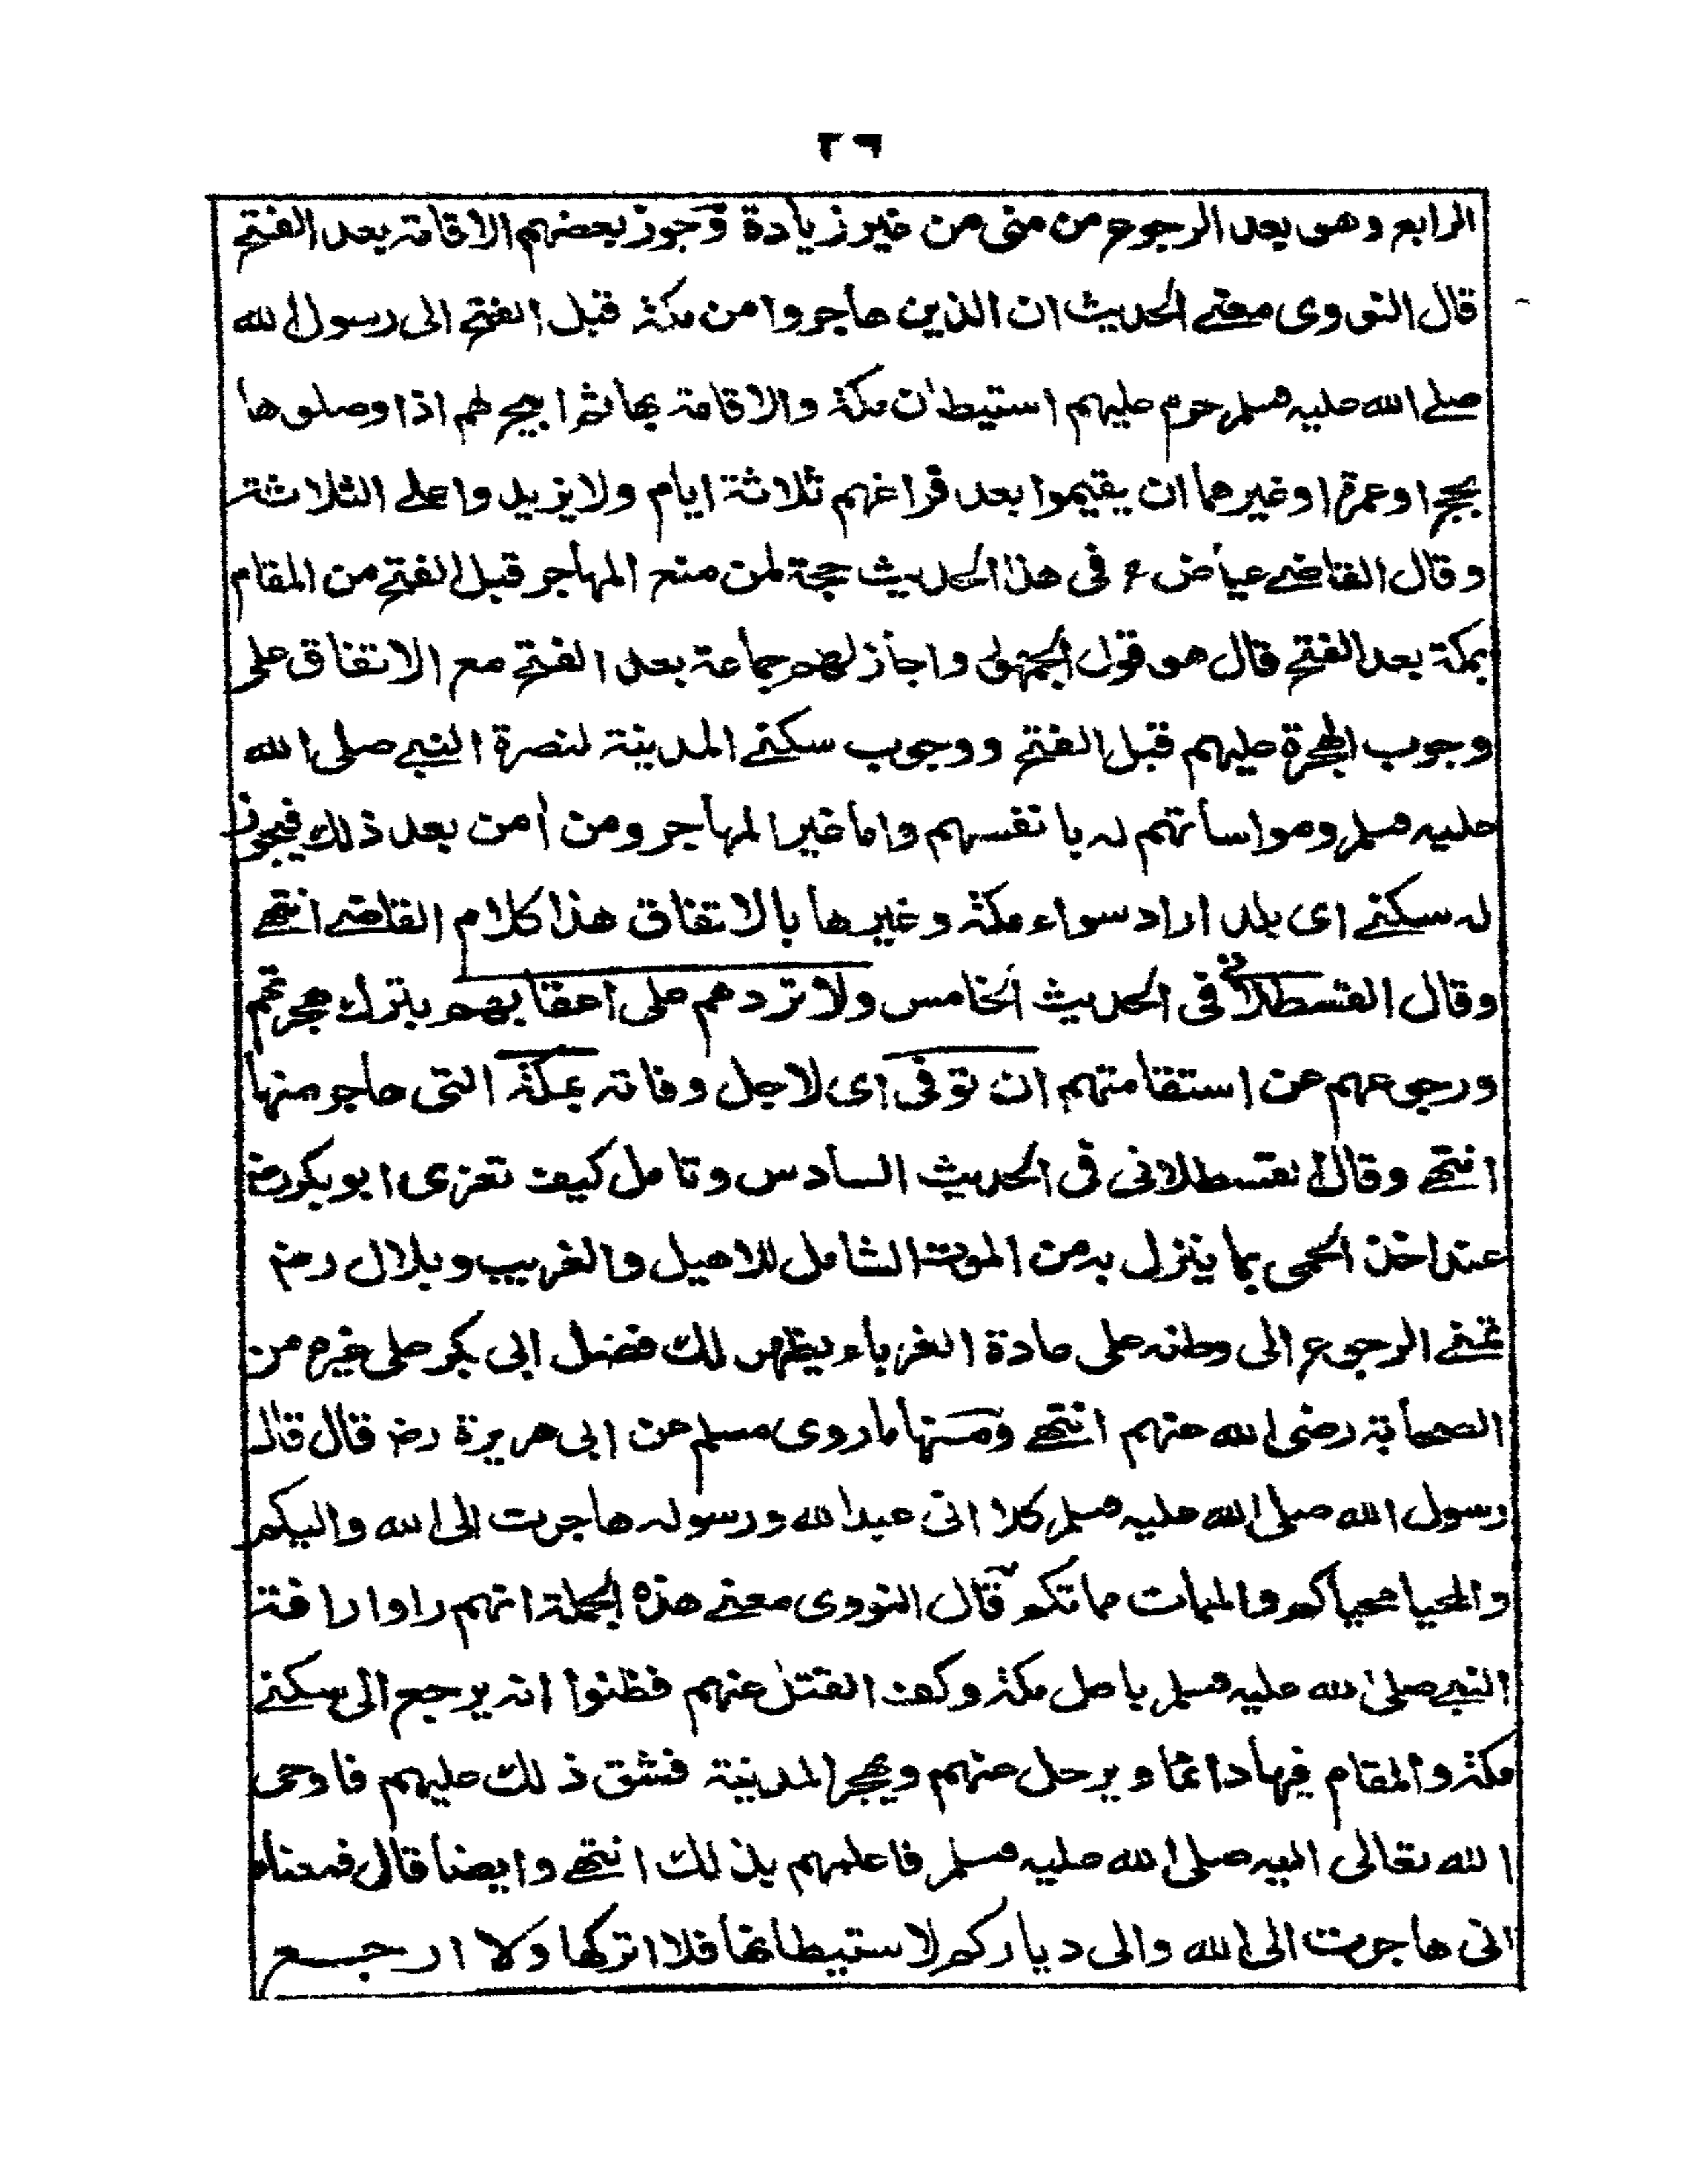 ٢٦
الرابع وهو بعد الرجوع من منى من غير زيادة وجوز بعضهم الاقامة بعد الفتح
قال النووى معنے الحديث ان الذين هاجروا من مكة قبل الفتح الى رسول الله
صلے الله عليه وسلم حرم عليهم استيطان مكة والاقامة بها ثم ابيح لهم اذا وصلوها
بحج او عمرة او غيرهما ان يقيموا بعد فراغهم ثلاثة ايام ولا يزيدوا على الثلاثة
وقال القاضے عياض ع فى هذا الحديث حجة لمن منع المهاجر قبل الفتح من المقام
بمكة بعد الفتح قال هو قول الجمهور واجاز لهم جماعة بعد الفتح مع الاتفاق على
وجوب الهجرة عليهم قبل الفتح ووجوب سكنے المدينة لنصرة النبے صلى الله
عليه وسلم ومواساتهم له بانفسهم واما غير المهاجر ومن أمن بعد ذلك فيجوز
له سكنے اى بلد اراد سواء مكة وغيرها بالاتفاق هذا كلام القاضے انتهے
وقال القسطلانى فى الحديث الخامس ولا تردهم على اعقابهم بترك هجرتهم
ورجوعهم عن استقامتهم ان توفى اى لاجل وفاته بمكة التى هاجر منها
انتهے وقال القسطلانى فى الحديث السادس وتامل كيف تعزى ابو بكر رض
عند اخذ الحمى بما ينزل به من الموت الشامل للاهيل والغريب وبلال رض
تمنے الرجوع الى وطنه على عادة الغرباء يظهر لك فضل ابى بكر على غيره من
الصحابة رضى الله عنهم انتهے ومنها ما روى مسلم عن ابى هريرة رض قال قال
رسول الله صلى الله عليه وسلم كلا انى عبد الله ورسوله هاجرت الى الله واليكم
والمحيا محياكم والممات مماتكم قال النووى معنے هذه الجملة انهم راوا رافة
النبے صلى الله عليه وسلم باهل مكة وكف القتل عنهم فظنوا انه يرجع الى سكنے
مكة والمقام فيها دائما ويرحل عنهم ويهجر المدينة فشق ذلك عليهم فاوحى
الله تعالى اليه صلى الله عليه وسلم فاعلمهم بذلك انتهے وايضا قال فمعناه
انى هاجرت الى الله والى دياركم لاستيطانها فلا اتركها ولا ارجع